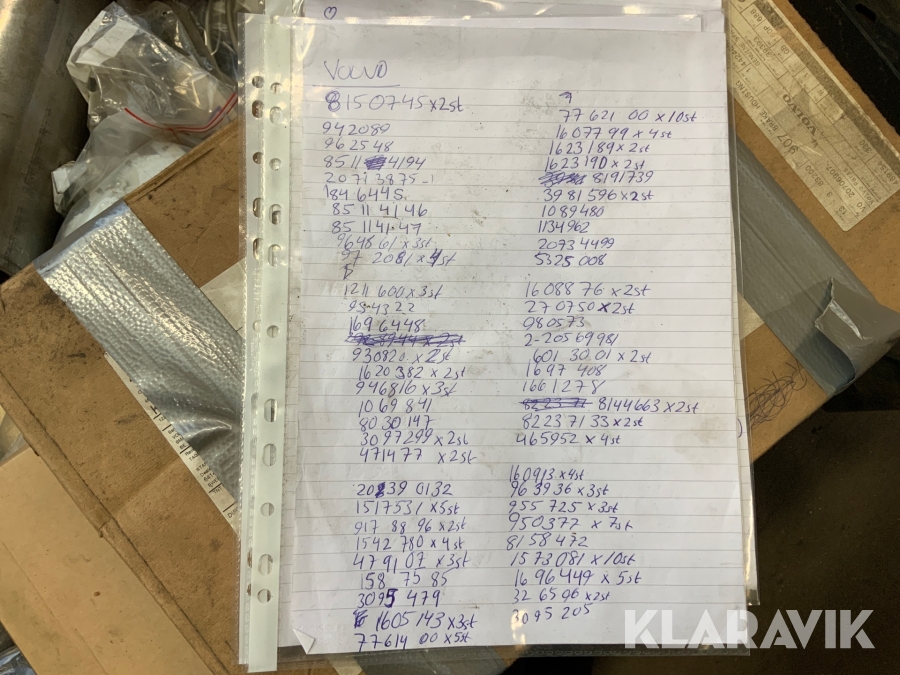 VOLVO
8150745 x2st
942089
962548
8511 4194
20713875-1
1846445
85114146
85 1141.47
964861 x3st
97 2081 x4st
1211 600 x3st
954322
1696448
930820 x2st
1620382 x2st
946816 x3st
1069841
8030147
3097299 x2st
471477 x2st
20839 0132
1517531 x5st
917 88 96 x2st
1542 780 x4st
479107 x3st
158 75 85
3095 479
1605143 x3st
77614 00 x5st
77621 00 x10st
1607799 x4st
1623189 x2st
1623190 x2st
8191739
3981596 x2st
1089480
1134962
20734499
5325008
16088 76 x2st
270750 x2st
980573
2-20569981
1601 30.01 x2st
1697 408
1661278
8144663 x2st
82237133 x2st
465952 x4st
160913 x4st
963936 x3st
955 725 x3st
950377 x7st
8158 472
1573081 x10st
1696449 x5st
32 6596 x2st
3095 205
VOLVO
KLARAVIK